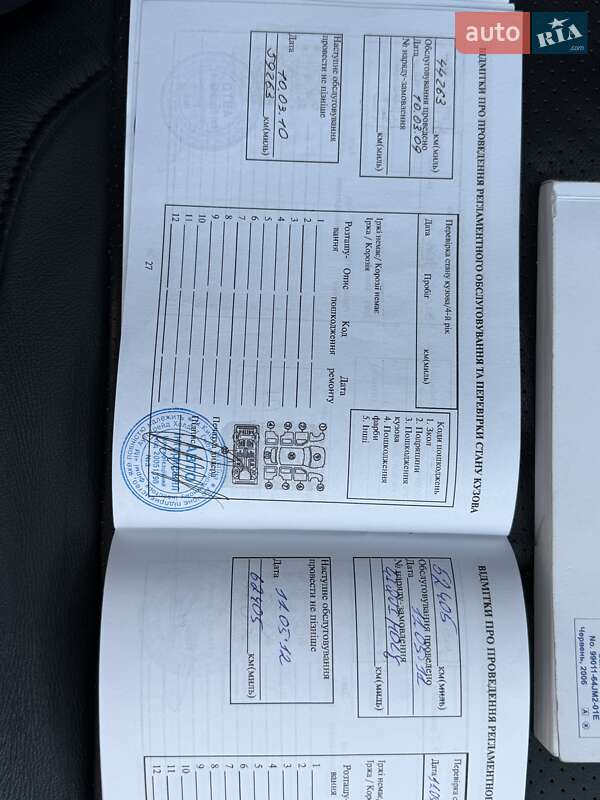 auto RIA .com
ВІДМІТКИ ПРО ПРОВЕДЕННЯ РЕГЛАМЕНТНОГО ОБСЛУГОВУВАННЯ ТА ПЕРЕВІРКИ СТАНУ КУЗОВА
44263 км(миль)
Обслуговування проведено
Дата 10.03.09
№ наряду-замовлення
км(миль)
Наступне обслуговування
провести не пізніше
Дата 10.03.10
59263 км(миль)
Перевірка стану кузова/4-й рік
Дата Пробіг км(миль)
Іржі немає/ Корозії немає
Іржа / Корозія
Коди пошкоджень
1. Закол
2. Подряпини
3. Пошкодження
кузова
4. Пошкодження
фарби
5. Інші
Розташу- Опис Код Дата
вання пошкодження ремонту
1
2
3
4
5
6
7
8
9
10
11
12
27
ВІДМІТКИ ПРО ПРОВЕДЕННЯ РЕГЛАМЕНТНОГ
52405 км(миль)
Обслуговування проведено
Дата 11.05.12
№ наряду-замовлення
км(миль)
Наступне обслуговування
провести не пізніше
Дата 11.05.12
62405 км(миль)
Перевірка
Дата
Іржі немає
Іржа / Ко
Розташу-
вання
1
2
3
4
5
6
7
8
9
10
11
12
No. 99011-64JM2-01E
Червень, 2006